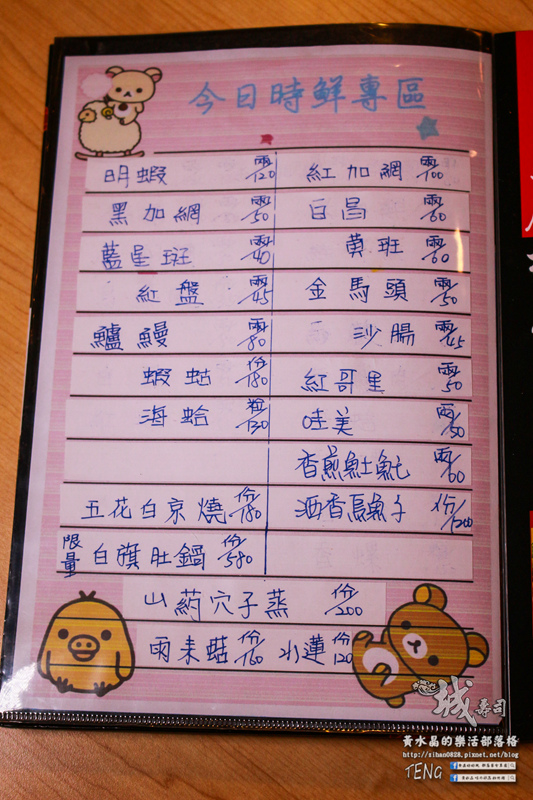 今日時鮮專區
明蝦 兩/120 紅加網 兩/100
黑加網 兩/50 白昌 兩/60
藍星斑 兩/40 黃斑 兩/60
紅盤 兩/45 金馬頭 兩/50
鱸鰻 兩/80 沙腸 兩/45
蝦蛄 份/180 紅哥里 兩/50
海蛤 粒/130 哇美 兩/50
香煎魠魠 兩/60
五花白京燒 份/180 酒香烏魚子 份/1200
限量 白旗肚鍋 份/580
山藥穴子蒸 份/200
雨來菇 份/160 水蓮 份/120
城 壽司
黃水晶的樂活部落格
http://sihan0828.pixnet.net/blog
TENG